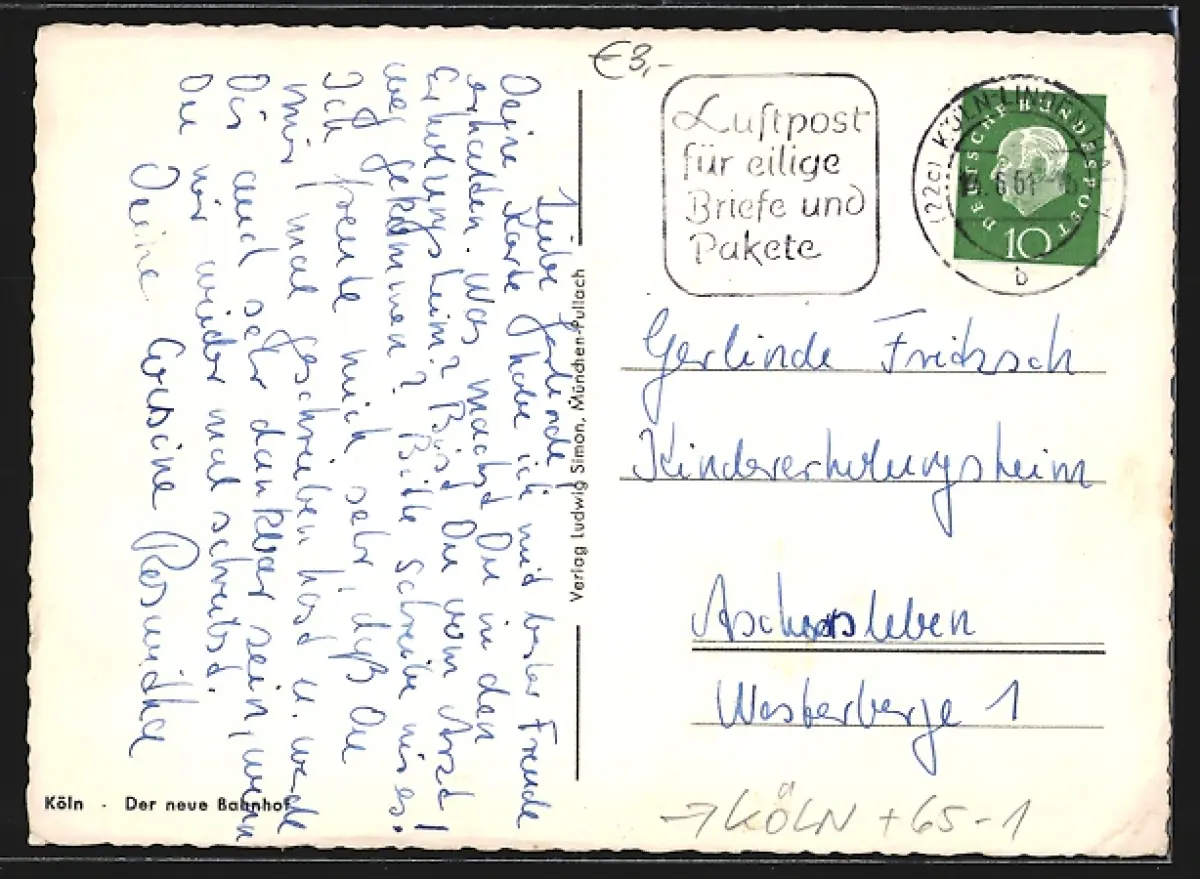 €3,-
Luftpost
für eilige
Briefe und
Pakete
(22c) KÖLN-LINDENTHAL
6.61
b
DEUTSCHE BUNDESPOST
10
Liebe Gerlinde!
Deine Karte habe ich mit bester Freude
erhalten. Was machst Du in den
Erholungsheim? Bist Du vom Arzt
weg gekommen? Bitte schreibe mir es!
Ich freute mich sehr, daß Du
mir mal geschrieben hast u. werde
Dir auch sehr dankbar sein, wenn
Du mir wieder mal schreibst.
Deine Cousine Roswitha
Verlag Ludwig Simon, München-Pullach
Gerlinde Fritzsch
Kindererholungsheim
Aschersleben
Westerberge 1
Köln · Der neue Bahnhof
→KÖLN +65-1